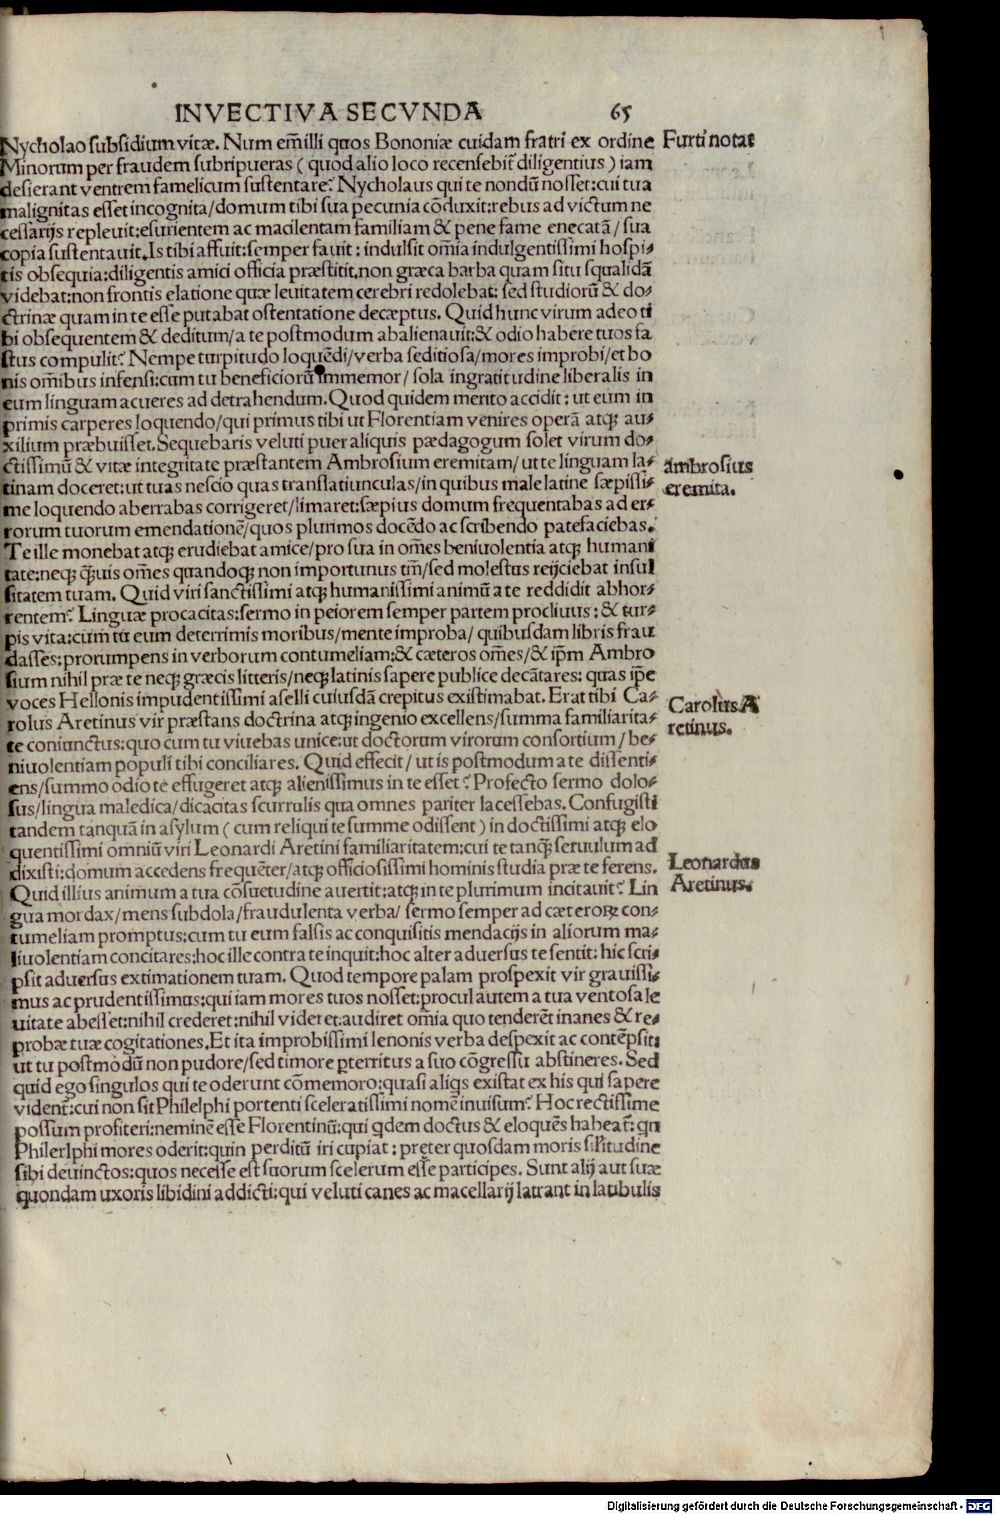 INVECTIVA SECVNDA 65
Nycholao subsidium vitæ. Num em̃ illi quos Bononiæ cuidam fratri ex ordine
Furti notat
Minorum per fraudem subripueras (quod alio loco recensebit̃ diligentius) iam
desierant ventrem famelicum sustentare? Nycholaus qui te nondũ nosset: cui tua
malignitas esset incognita/domum tibi sua pecunia cõduxit: rebus ad victum ne
cessarijs repleuit: esurientem ac macilentam familiam & pene fame enecatã/sua
copia sustentauit. Is tibi affuit: semper fauit: indulsit om̃ia indulgentissimi hospi-
tis obsequia: diligentis amici officia præstitit. non græca barba quam situ squalidã
videbat: non frontis elatione quæ leuitatem cerebri redolebat: sed studiorũ & do-
ctrinæ quam in te esse putabat ostentatione deceptus. Quid hunc virum adeo ti
bi obsequentem & deditum/a te postmodum abalienauit: & odio habere tuos fa
stus compulit? Nempe turpitudo loquẽdi/verba seditiosa/mores improbi/et bo
nis om̃ibus infensi: cum tu beneficiorũ immemor/sola ingratitudine liberalis in
eum linguam acueres ad detrahendum. Quod quidem merito accidit: ut eum in
primis carperes loquendo/qui primus tibi ut Florentiam venires operã atqꝫ au-
xilium præbuisset. Sequebaris veluti puer aliquis pædagogum solet virum do-
ctissimũ & vitæ integritate præstantem Ambrosium eremitam/ut te linguam la-
Ambrosius
tinam doceret: ut tuas nescio quas translatiunculas/in quibus male latine sæpissi-
eremita.
me loquendo aberrabas corrigeret/limaret: sæpius domum frequentabas ad er-
rorum tuorum emendationẽ/quos plurimos docẽdo ac scribendo patefaciebas.
Te ille monebat atqꝫ erudiebat amice/pro sua in om̃es beniuolentia atqꝫ humani
tate: neqꝫ q̃uis om̃es quandoqꝫ non importunus tm̃/sed molestus reijciebat insul
sitatem tuam. Quid viri sanctissimi atqꝫ humanissimi animũ a te reddidit abhor-
rentem? Linguæ procacitas: sermo in peiorem semper partem procliuus: & tur-
pis vita: cum tu eum deterrimis moribus/mente improba/quibusdam libris frau
dasses: prorumpens in verborum contumeliam: & cæteros om̃es/& ip̃m Ambro
sium nihil præ te neqꝫ græcis litteris/neqꝫ latinis sapere publice decãtares: quas ip̃e
voces Hellonis impudentissimi aselli cuiusdã crepitus existimabat. Erat tibi Ca-
Carolus A
rolus Aretinus vir præstans doctrina atqꝫ ingenio excellens/summa familiarita-
retinus.
te coniunctus: quo cum tu viuebas unice: ut doctorum virorum consortium/be-
niuolentiam populi tibi conciliares. Quid effecit/ut is postmodum a te dissenti-
ens/summo odio te effugeret atqꝫ alienissimus in te esset? Profecto sermo dolo-
sus/lingua maledica/dicacitas scurrulis qua omnes pariter lacessebas. Confugisti
tandem tanquã in asylum (cum reliqui te summe odissent) in doctissimi atqꝫ elo
quentissimi omniũ viri Leonardi Aretini familiaritatem: cui te tanq̃ seruulum ad
Leonardus
dixisti: domum accedens frequẽter/atqꝫ officiosissimi hominis studia præ te ferens.
Aretinus.
Quid illius animum a tua cõsuetudine auertit: atqꝫ in te plurimum incitauit? Lin
gua mordax/mens subdola/fraudulenta verba/sermo semper ad cæteroꝝ con-
tumeliam promptus: cum tu eum falsis ac conquisitis mendacijs in aliorum ma-
liuolentiam concitares: hoc ille contra te inquit: hoc alter aduersus te sentit: hic scri-
psit aduersus extimationem tuam. Quod tempore palam prospexit vir grauissi-
mus ac prudentissimus: qui iam mores tuos nosset: procul autem a tua ventosa le
uitate abesset: nihil crederet: nihil videret: audiret om̃ia quo tenderẽt inanes & re-
probæ tuæ cogitationes. Et ita improbissimi lenonis verba despexit ac contẽpsit:
ut tu postmodũ non pudore/sed timore ꝑterritus a suo cõgressu abstineres. Sed
quid ego singulos qui te oderunt cõmemoro: quasi aliq̃s existat ex his qui sapere
videnť: cui non sit Philelphi portenti sceleratissimi nomẽ inuisum? Hoc rectissime
possum profiteri: neminẽ esse Florentinũ: qui q̃dem doctus & eloquẽs habeať: qn
Philerlphi mores oderit: quin perditũ iri cupiat: pręter quosdam moris sĩlitudine
sibi deuinctos: quos necesse est suorum scelerum esse participes. Sunt alij aut suæ
quondam uxoris libidini addicti: qui veluti canes ac macellarij latrant in latibulis
Digitalisierung gefördert durch die Deutsche Forschungsgemeinschaft - DFG